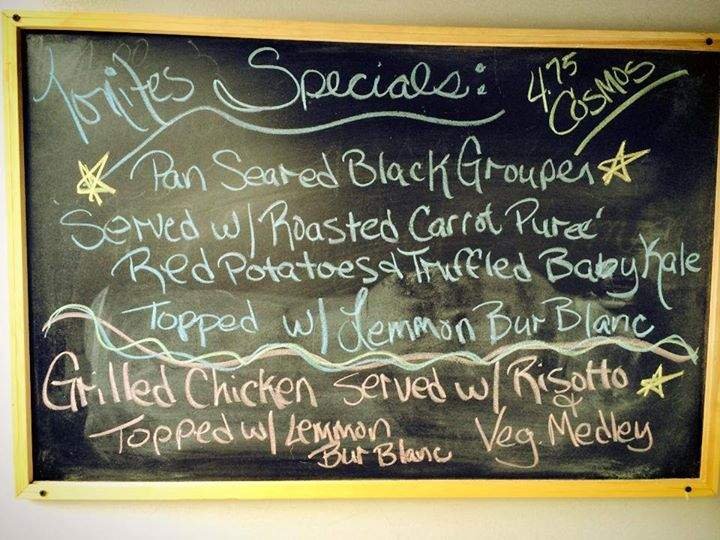 Tonites Specials:
4.75
Cosmos
Pan Seared Black Grouper
Served w/ Roasted Carrot Pureé
Red Potatoes & Truffled Baby Kale
Topped w/ Lemmon Bur Blanc
Grilled Chicken Served w/ Risotto
&
Topped w/ Lemmon Veg. Medley
Bur Blanc